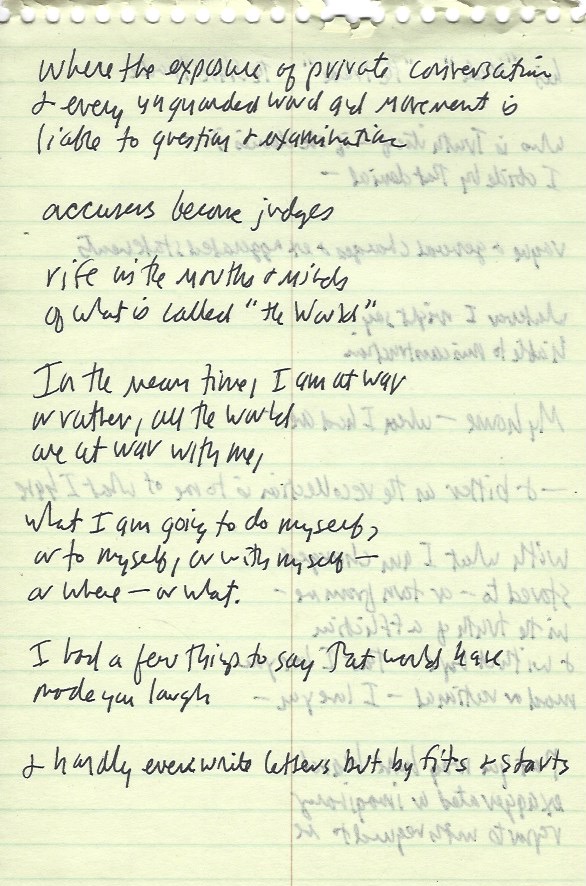 Where the exposure of private conversation
& every unguarded word and movement is
liable to question & examination
accusers become judges
rife in the mouths & minds
of what is called "the World"
In the mean time, I am at war
or rather, all the world
are at war with me,
what I am going to do myself,
or to myself, or with myself —
or where — or what.
I had a few things to say that would have
made you laugh
& hardly ever write letters but by fits & starts